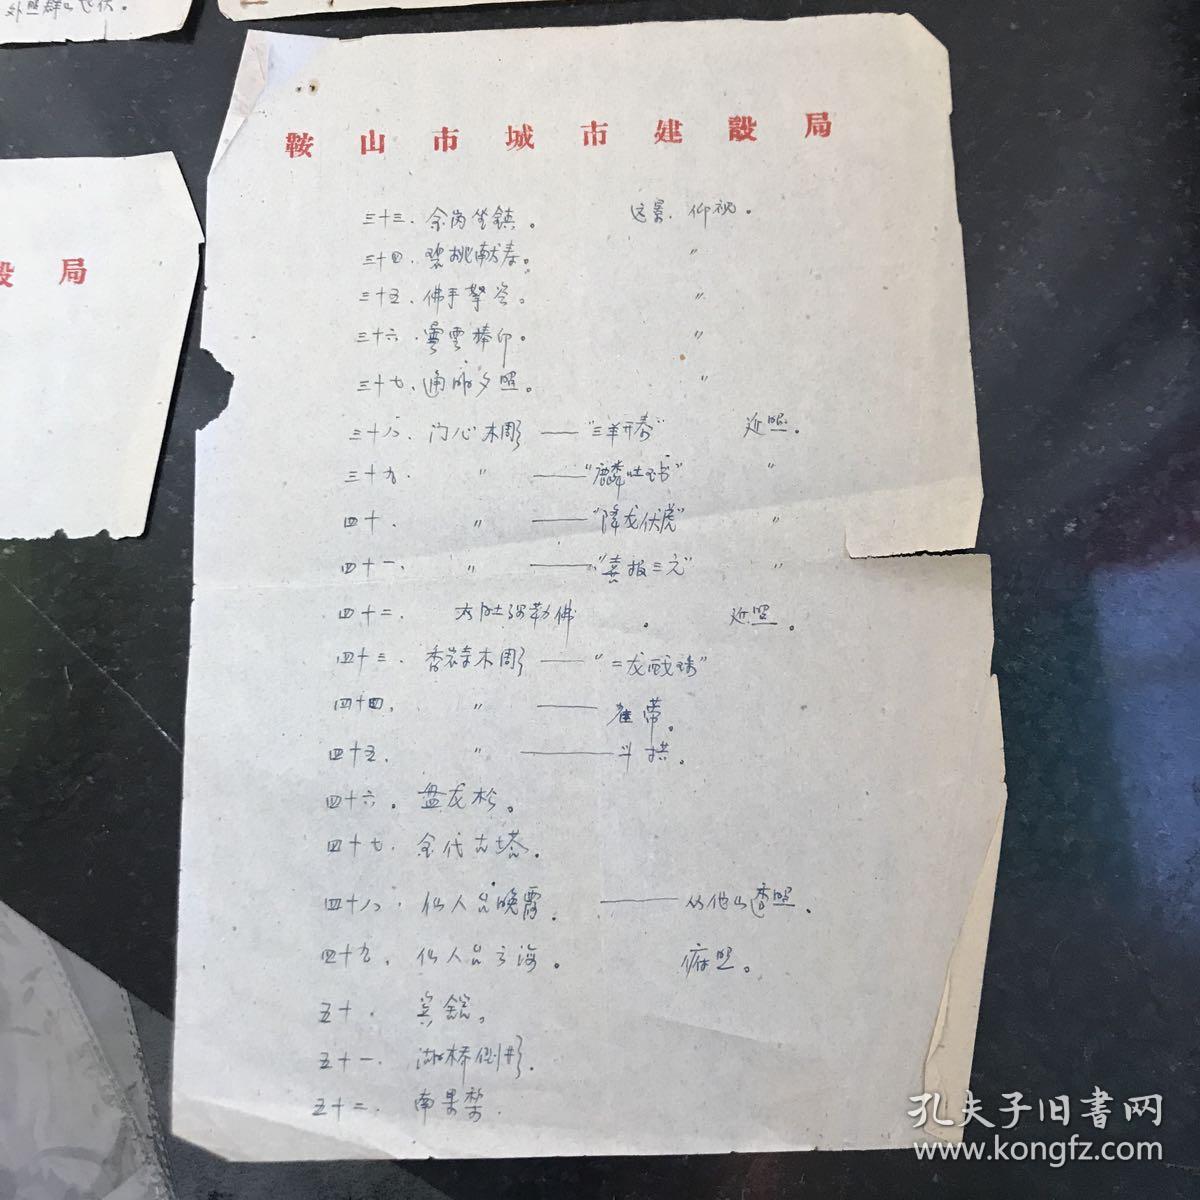 外照群山起伏。
鞍山市城市建設局
設局
三十三．余岗坐鎮。 远景．仰视。
三十四．碧桃献寿。 〃
三十五．佛手擎空。 〃
三十六．雲捧印。 〃
三十七．通明夕照。 〃
三十八．门心木彫——“三羊开泰” 近照。
三十九． 〃 ——“麟吐书” 〃
四十． 〃 ——“降龙伏虎” 〃
四十一． 〃 ——“喜报三元” 〃
四十二． 大肚弥勒佛。 近照。
四十三．香荣木彫——“二龙戏珠”
四十四． 〃 ——雀蒂。
四十五． 〃 ——斗拱。
四十六．盘龙松。
四十七．金代古塔．
四十八．仙人台晚霞．——从他山遥照．
四十九．仙人台云海。 俯照。
五十．宾舘。
五十一．湖桥倒影．
五十二．南果梨．
孔夫子旧書网
www.kongfz.com